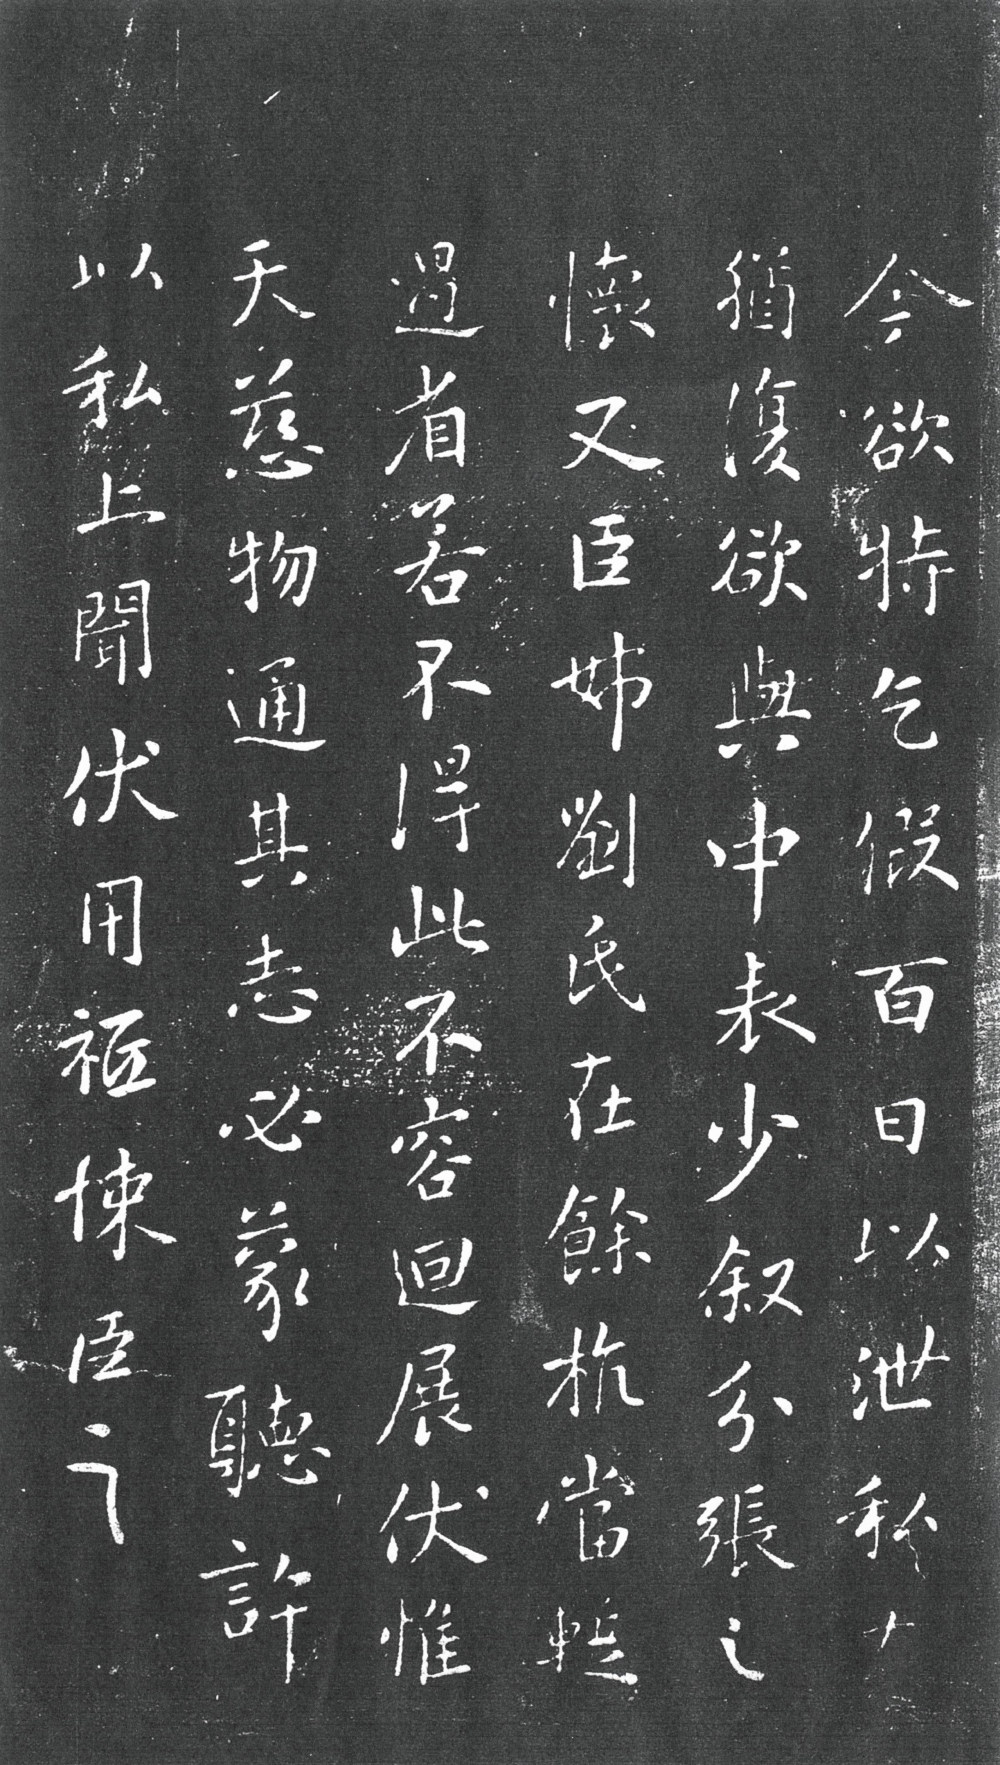 今欲特乞假百日以泄私
猶復欲與中表少叙分張之
懷又臣姊劉氏在餘杭當蹔
過省若不得此不容迴展伏惟
天慈物通其志必蒙聽許
以私上聞伏用衹悚臣之